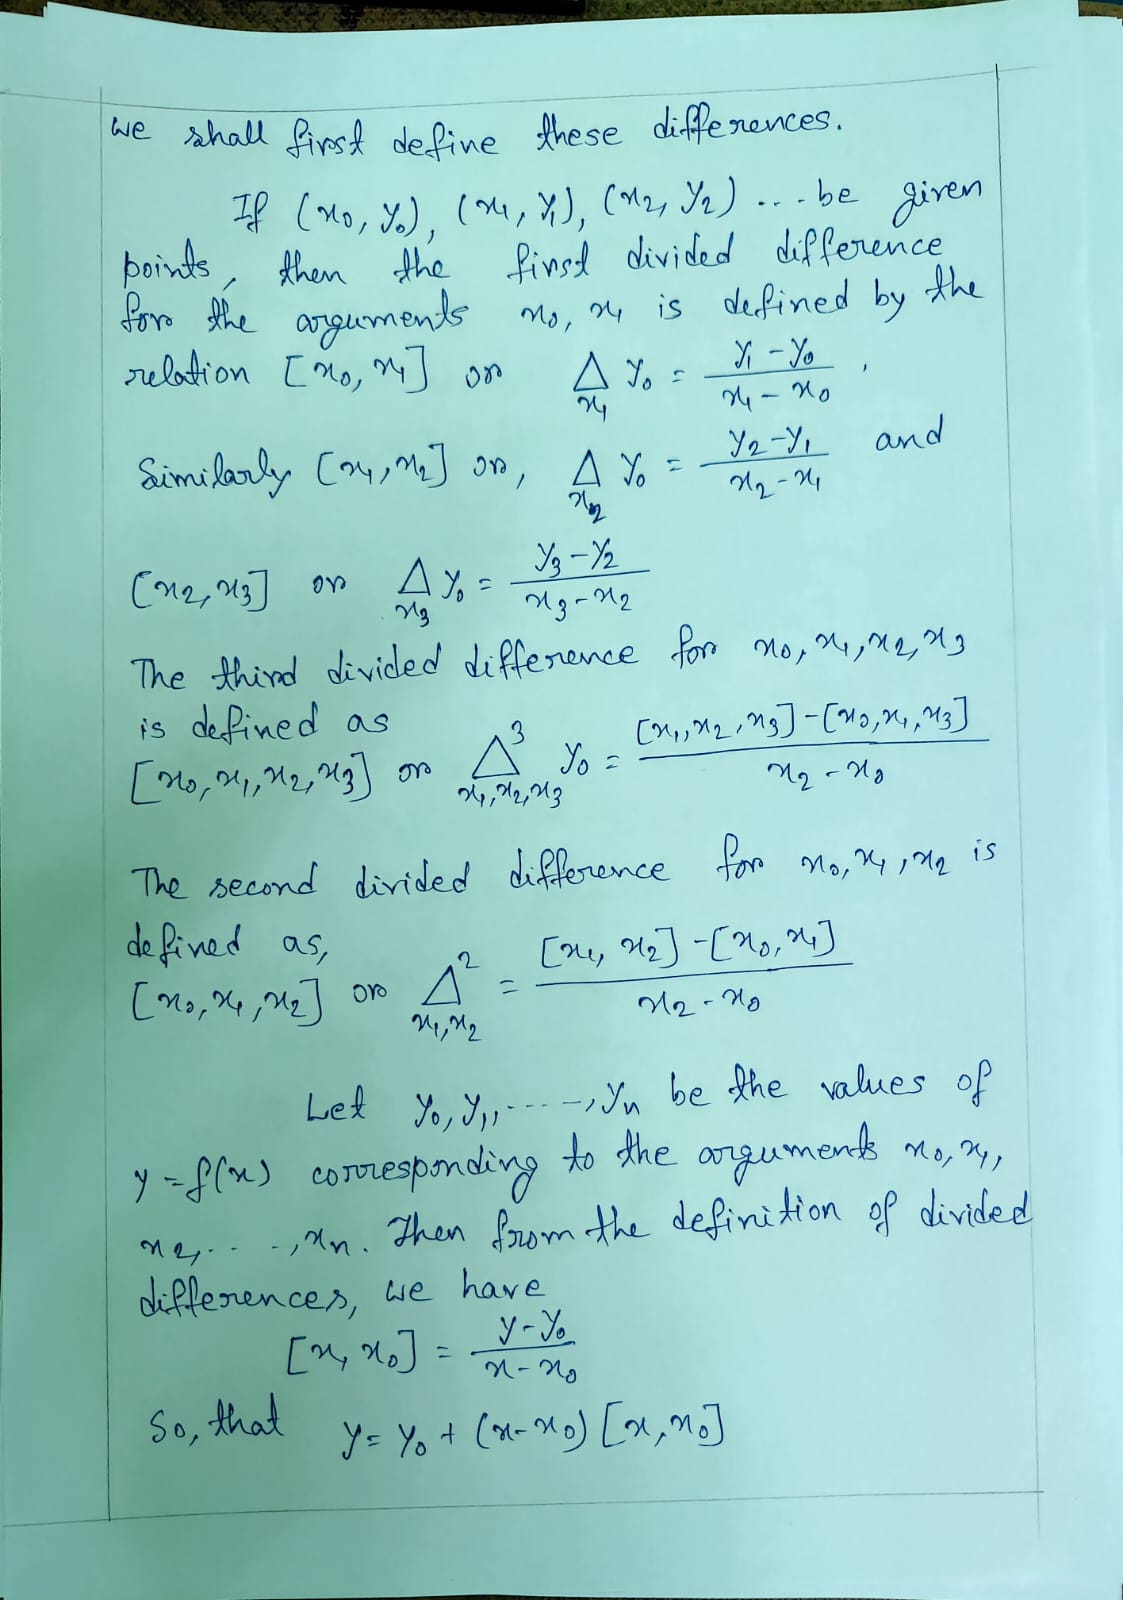 we shall first define these differences.
If (x0, y0), (x1, y1), (x2, y2) ... be given
points, then the first divided difference
for the arguments x0, x1 is defined by the
relation [x0, x1] or Δ_{x1} y0 = (y1 - y0)/(x1 - x0),
Similarly [x1, x2] or, Δ_{x2} y0 = (y2 - y1)/(x2 - x1) and
[x2, x3] or Δ_{x3} y0 = (y3 - y2)/(x3 - x2)
The third divided difference for x0, x1, x2, x3
is defined as
[x0, x1, x2, x3] or Δ^3_{x1, x2, x3} y0 = ([x1, x2, x3] - [x0, x1, x3])/(x2 - x0)
The second divided difference for x0, x1, x2 is
defined as,
[x0, x1, x2] or Δ^2_{x1, x2} = ([x1, x2] - [x0, x1])/(x2 - x0)
Let y0, y1, ----, yn be the values of
y = f(x) corresponding to the arguments x0, x1,
x2, ..., xn. Then from the definition of divided
differences, we have
[x, x0] = (y - y0)/(x - x0)
So, that y = y0 + (x - x0) [x, x0]